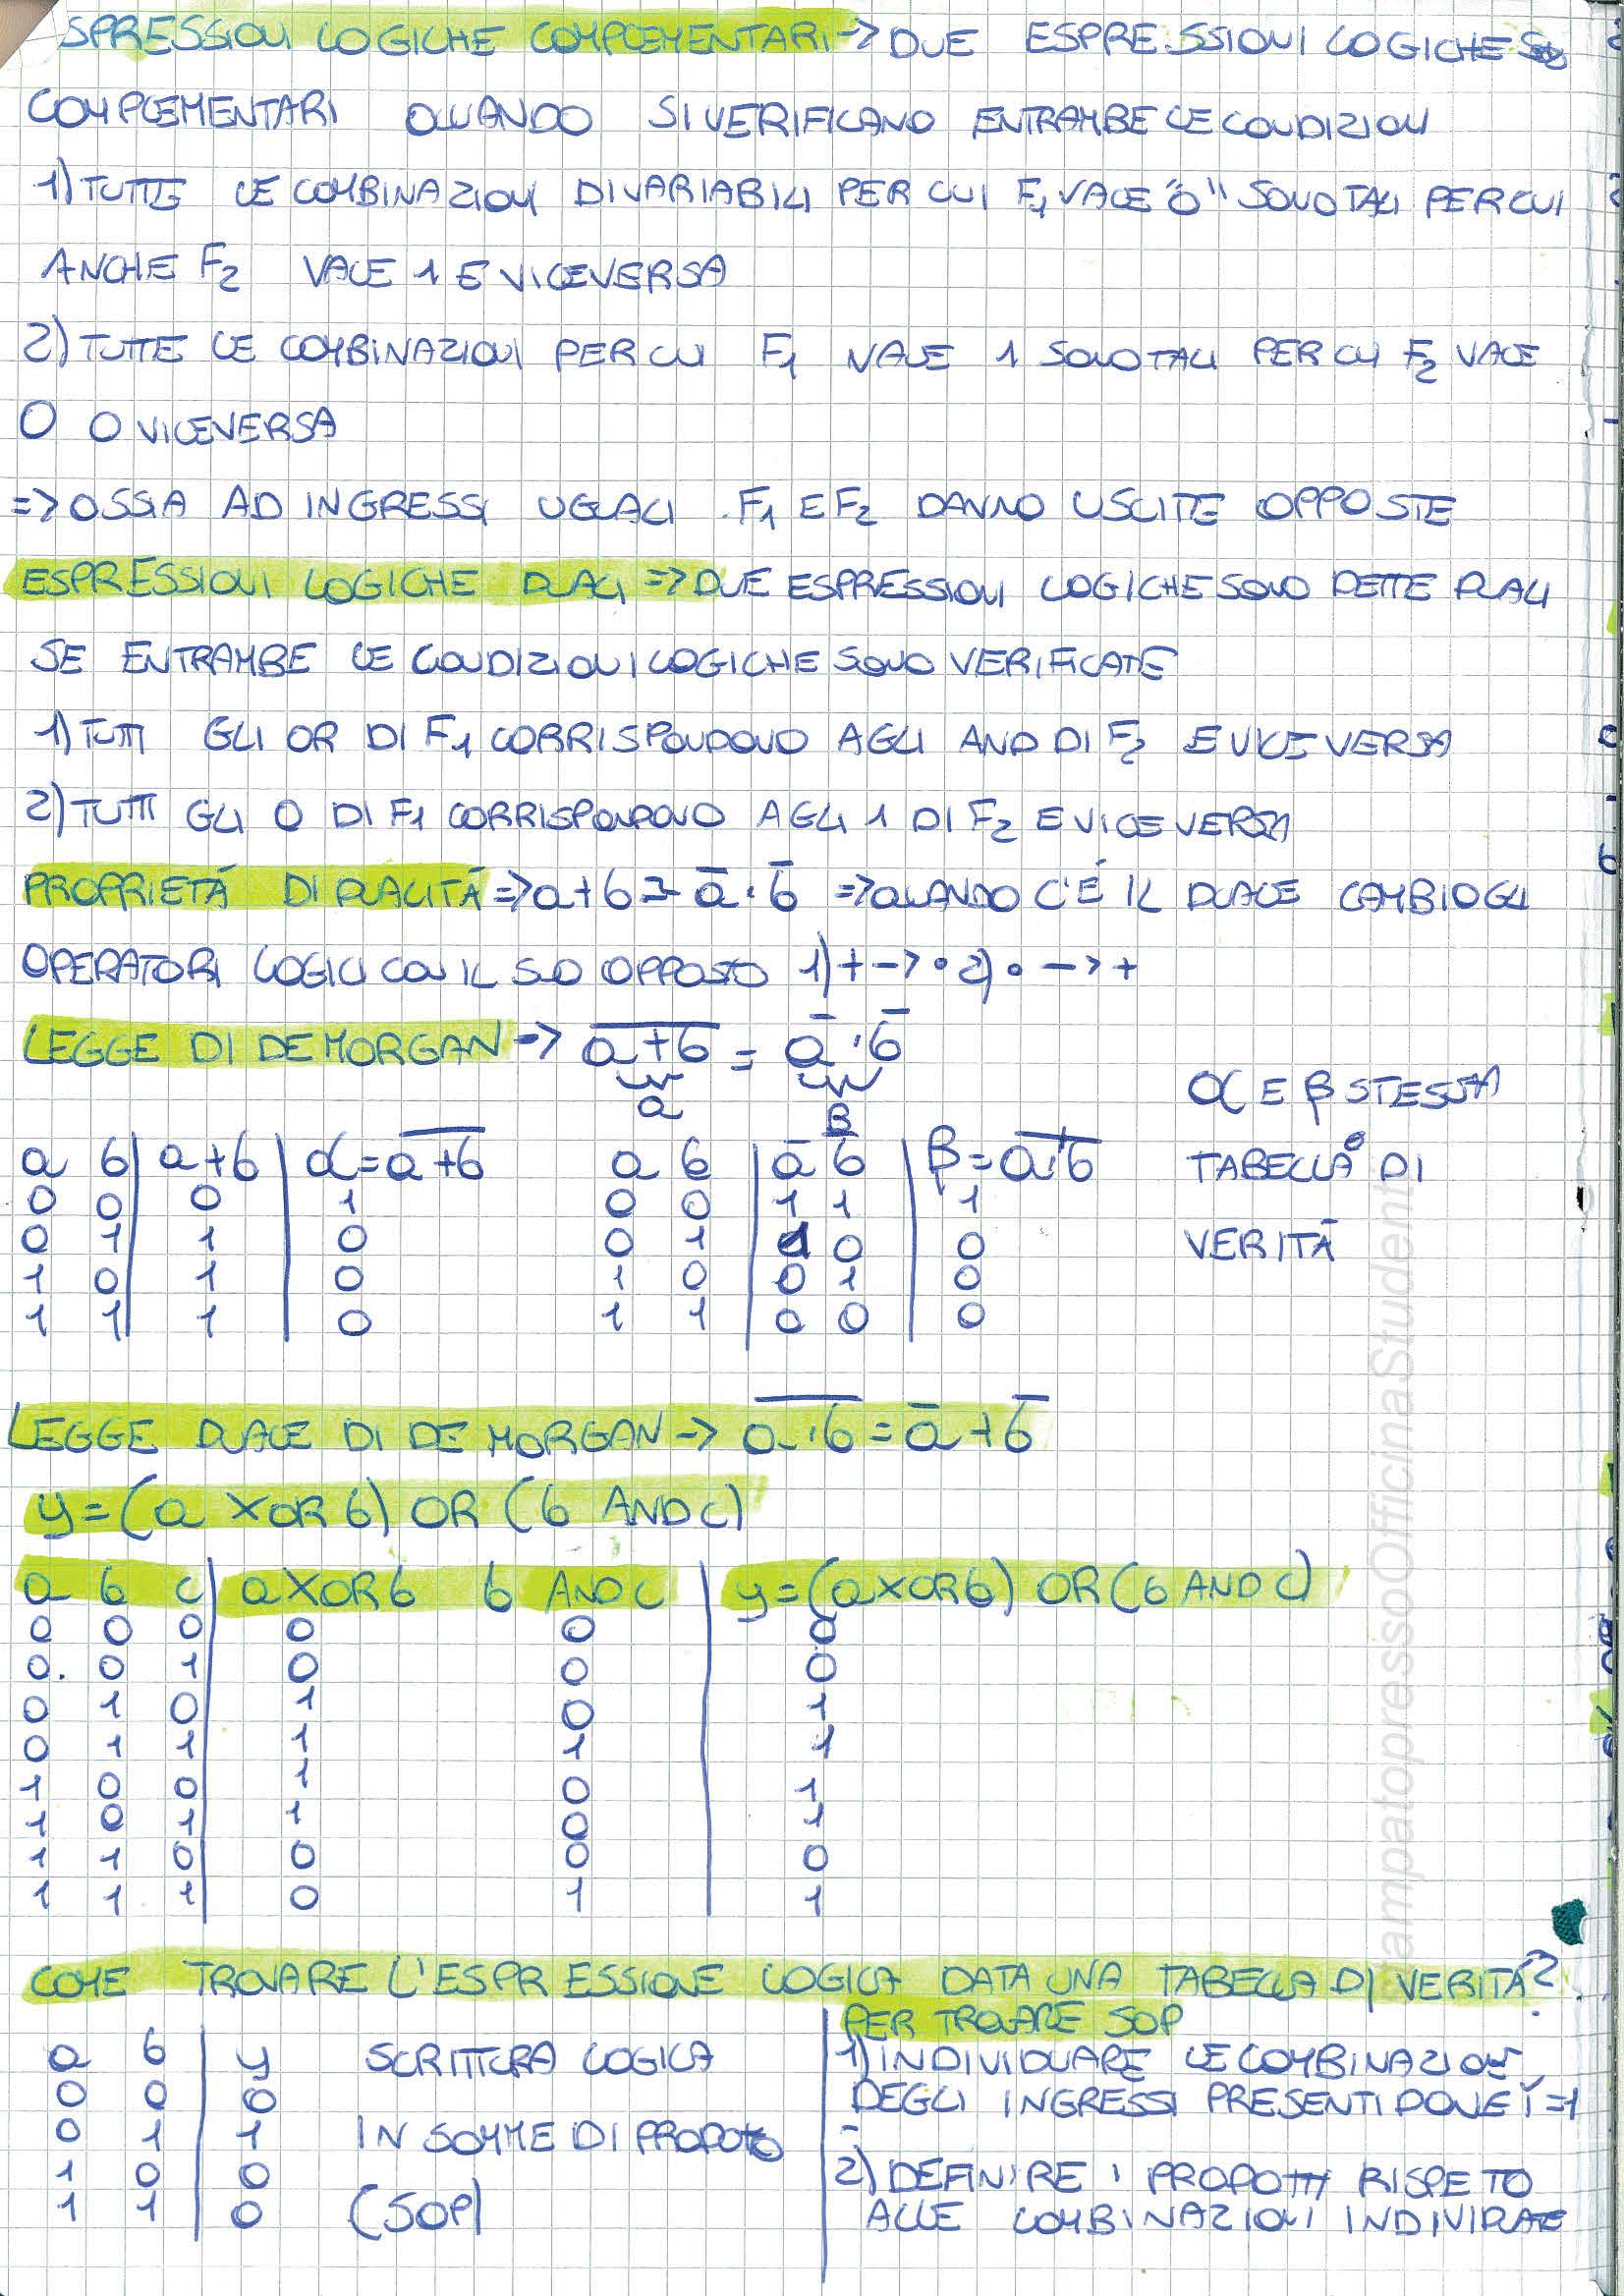 SPRESSIONI LOGICHE COMPLEMENTARI -> DUE ESPRESSIONI LOGICHE SO
COMPLEMENTARI QUANDO SI VERIFICANO ENTRAMBE LE CONDIZIONI
1) TUTTE LE COMBINAZIONI DI VARIABILI PER CUI F1 VALE "0" SONO TALI PER CUI
ANCHE F2 VALE 1 E VICEVERSA
2) TUTTE LE COMBINAZIONI PER CUI F1 VALE 1 SONO TALI PER CUI F2 VALE
0 O VICEVERSA
=> OSSIA AD INGRESSI UGUALI F1 E F2 DANNO USCITE OPPOSTE
ESPRESSIONI LOGICHE DUALI => DUE ESPRESSIONI LOGICHE SONO DETTE DUALI
SE ENTRAMBE LE CONDIZIONI LOGICHE SONO VERIFICATE
1) TUTTI GLI OR DI F1 CORRISPONDONO AGLI AND DI F2 E VICEVERSA
2) TUTTI GLI 0 DI F1 CORRISPONDONO AGLI 1 DI F2 E VICEVERSA
PROPRIETÁ DI DUALITÁ => a+b = a̅·b̅ => QUANDO C'É IL DUALE CAMBIO GLI
OPERATORI LOGICI CON IL SUO OPPOSTO 1) + -> • 2) • -> +
LEGGE DI DE MORGAN -> a̅+̅b̅ = a̅·b̅
α β
α E β STESSA
a b | a+b | α = a̅+̅b̅ a b | a̅ b̅ | β = a̅·b̅ TABELLA DI
0 0 0 1 0 0 1 1 1
0 1 1 0 0 1 1 0 0 VERITÁ
1 0 1 0 1 0 0 1 0
1 1 1 0 1 1 0 0 0
LEGGE DUALE DI DE MORGAN -> a̅·̅b̅ = a̅+b̅
y = (a XOR b) OR (b AND C)
a b c | a XOR b b AND C | y = (a XOR b) OR (b AND C)
0 0 0 0 0 0
0. 0 1 0 0 0
0 1 0 1 0 1
0 1 1 1 1 1
1 0 0 1 0 1
1 0 1 1 0 1
1 1 0 0 0 0
1 1 1 0 1 1
COME TROVARE L'ESPRESSIONE LOGICA DATA UNA TABELLA DI VERITÁ?
PER TROVARE SOP
a b | y SCRITTURA LOGICA 1) INDIVIDUARE LE COMBINAZIONI
0 0 0 DEGLI INGRESSI PRESENTI DOVE Y=1
0 1 1 IN SOMME DI PRODOTTO
1 0 0 2) DEFINIRE I PRODOTTI RISPETTO
1 1 0 (SOP) ALLE COMBINAZIONI INDIVIDUATE
stampatopressoOfficinaStudenti